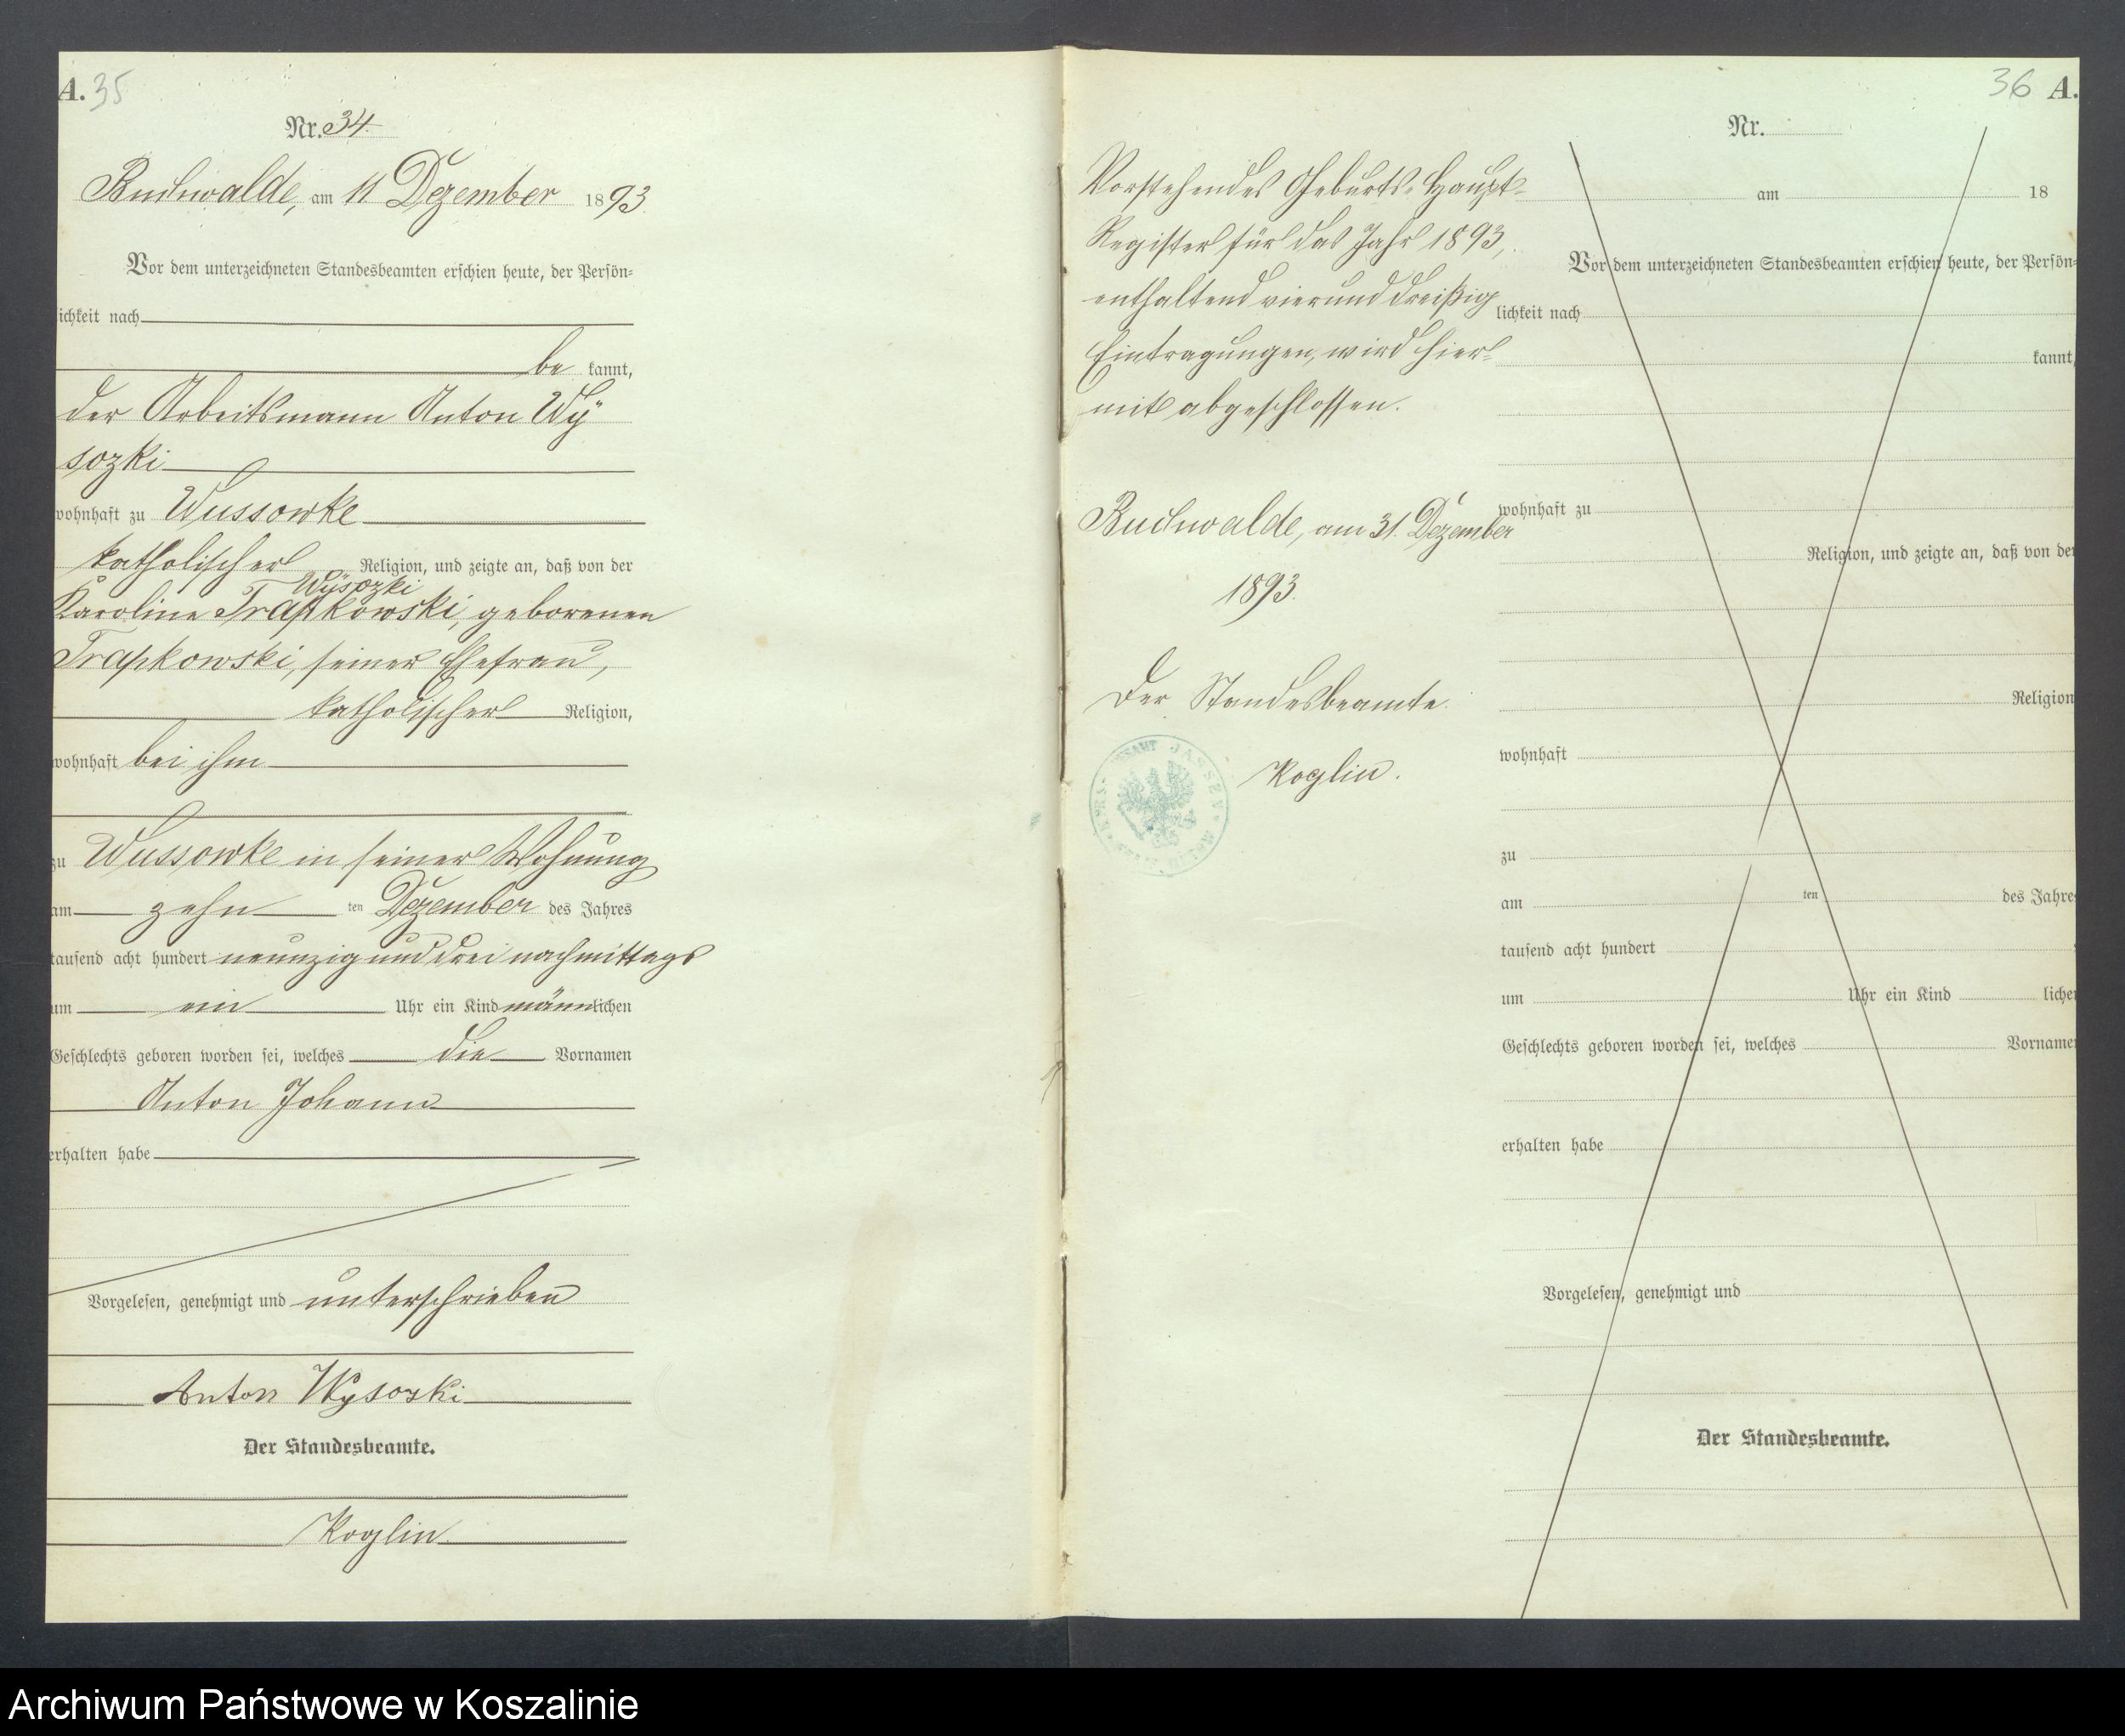 A. 35
Nr. 34.
Buchwalde, am 11 Dezember 1893.
Vor dem unterzeichneten Standesbeamten erschien heute, der Persön-
lichkeit nach
be kannt,
der Arbeitsmann Anton Wÿ
sozki
wohnhaft zu Wussowke
katholischer Religion, und zeigte an, daß von der
Wÿsozki
Karoline Trapkowski, geborenen
Trapkowski, seiner Ehefrau,
katholischer Religion,
wohnhaft bei ihm
zu Wussowke in seiner Wohnung
am zehn ten Dezember des Jahres
tausend acht hundert neunzig und drei nachmittags
um ein Uhr ein Kind männlichen
Geschlechts geboren worden sei, welches die Vornamen
Anton Johann
erhalten habe
Vorgelesen, genehmigt und unterschrieben
Anton Wysozki
Der Standesbeamte.
Koglin
36 A.
Vorstehendes Geburts-Haupt-
Register für das Jahr 1893,
enthaltend vierunddreißig
Eintragungen, wird hier-
mit abgeschlossen.
Buchwalde, am 31. Dezember
1893.
Der Standesbeamte.
Koglin.
Nr.
am 18
Vor dem unterzeichneten Standesbeamten erschien heute, der Persön-
lichkeit nach
kannt,
wohnhaft zu
Religion, und zeigte an, daß von der
Religion
wohnhaft
zu
am ten des Jahre
tausend acht hundert
um Uhr ein Kind licher
Geschlechts geboren worden sei, welches Vorname
erhalten habe
Vorgelesen, genehmigt und
Der Standesbeamte.
Archiwum Państwowe w Koszalinie